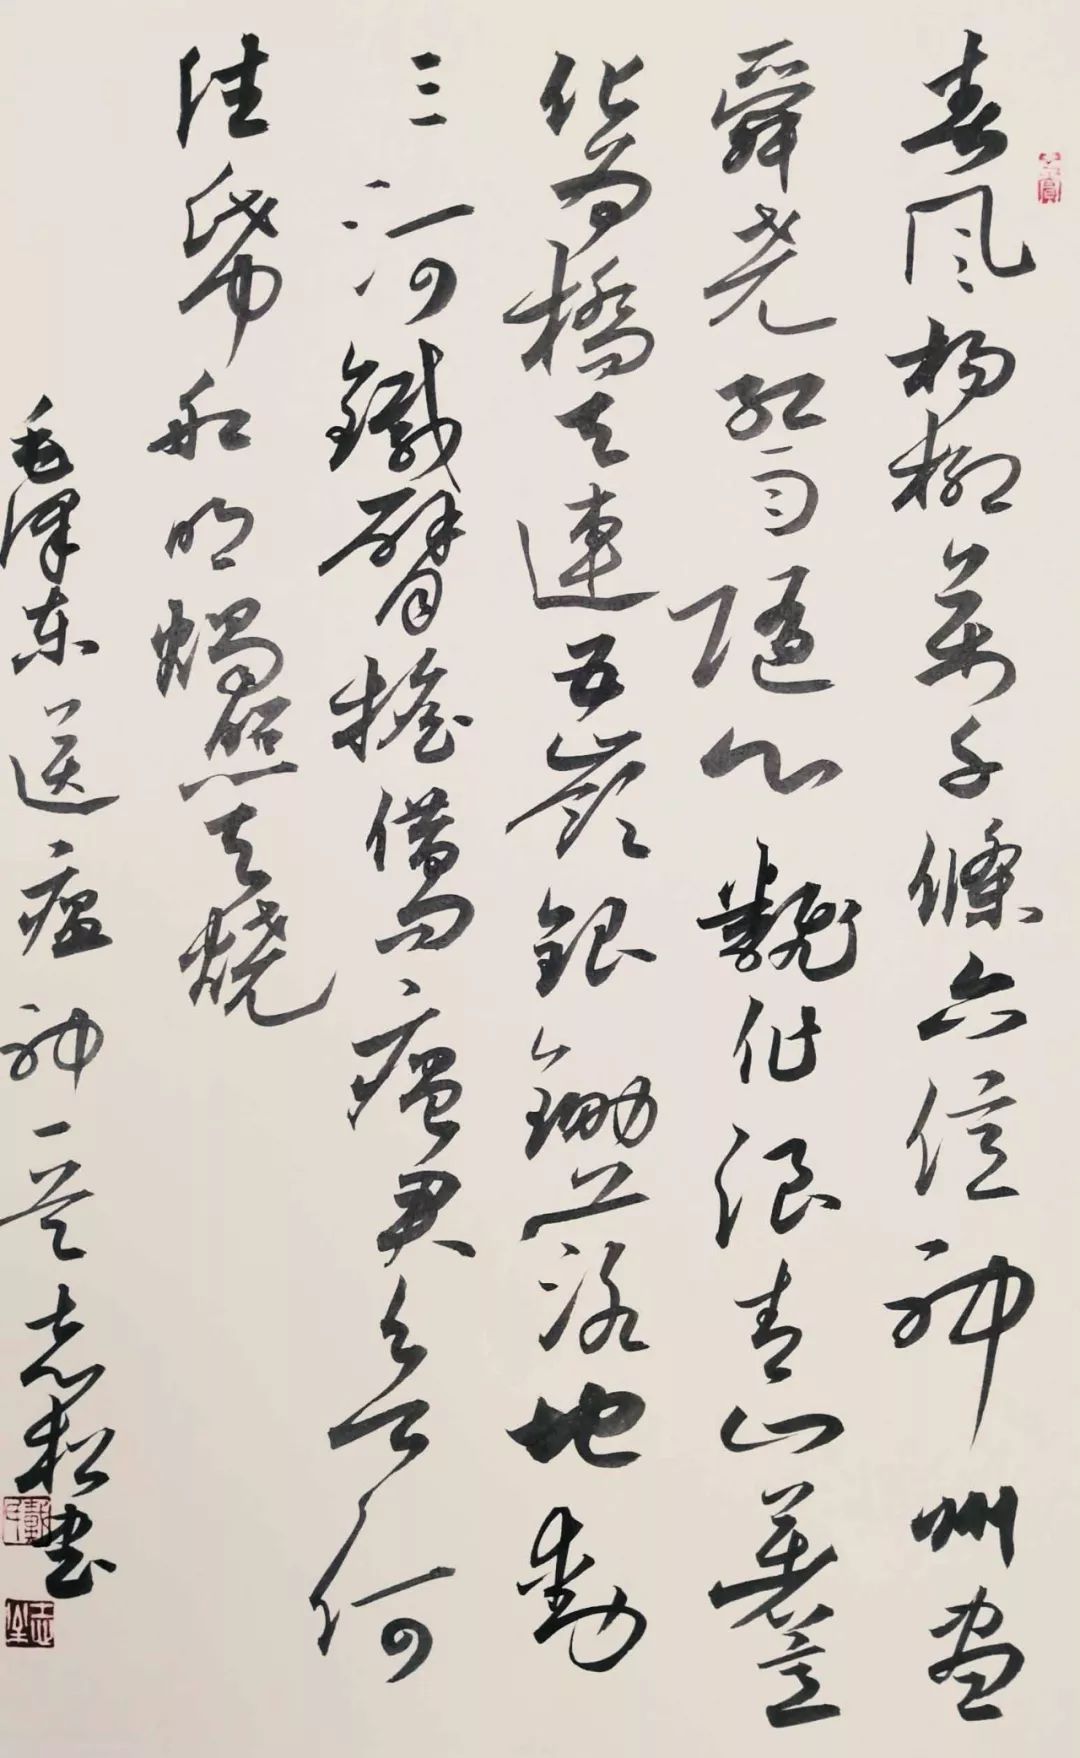 春风杨柳萬千條六億神州尽
舜尧红雨随心飜作浪青山着意
化为橋天連五嶺银锄落地動
三河鐵臂摇借问瘟君欲何
往帋船明燭照天烧
毛泽东送瘟神一首志松书